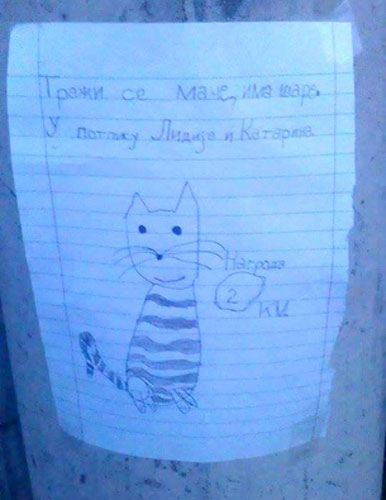 Тражи се маче, има шаре.
У потпису Лидија и Катарина
Награда
2
КМ